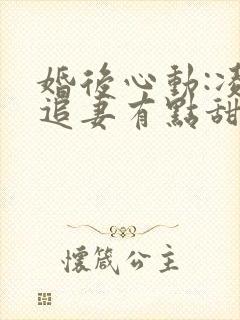 婚後心動:凌
追妻有點甜
懷箴公主